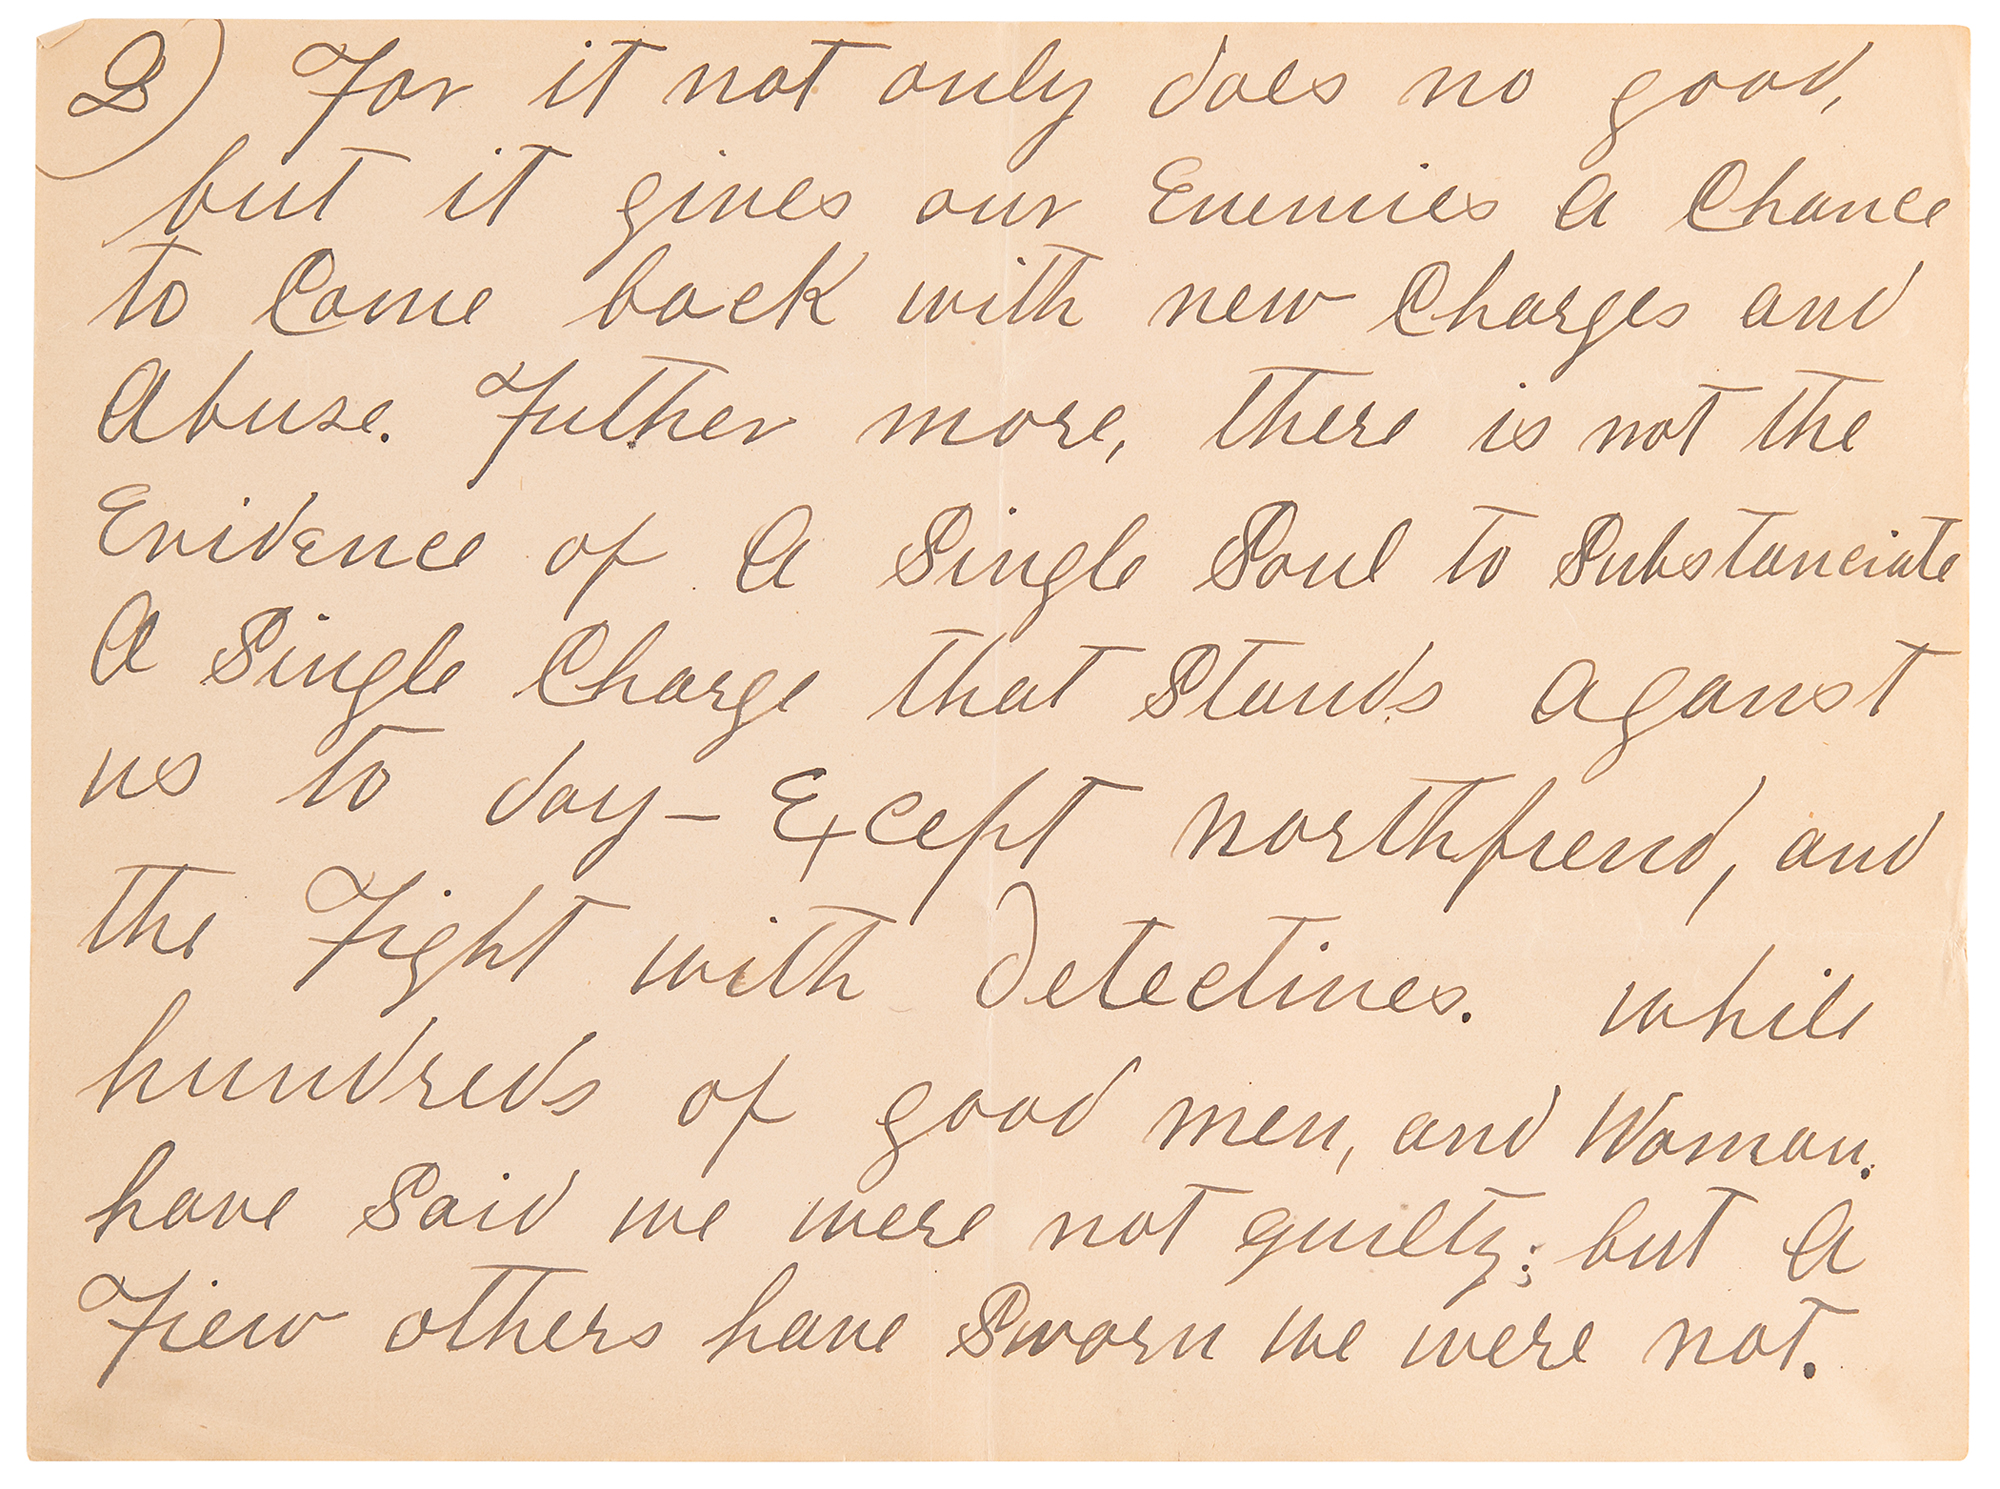 2) For it not only does no good,
but it gives our Enemies A Chance
to Come back with new Charges and
Abuse. Futher more, there is not the
Evidence of A Single Soul to Substanciate
A Single Charge that Stands Aganst
us to day – Except northfiend, and
the Fight with Detectives. while
hundreds of good men, and Woman.
have Said we were not guilty; but A
Fiew others have Sworn we were not.